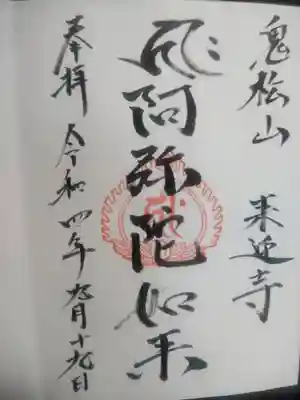 鬼松山　来迎寺
阿弥陀如来
奉拝　令和四年九月十九日